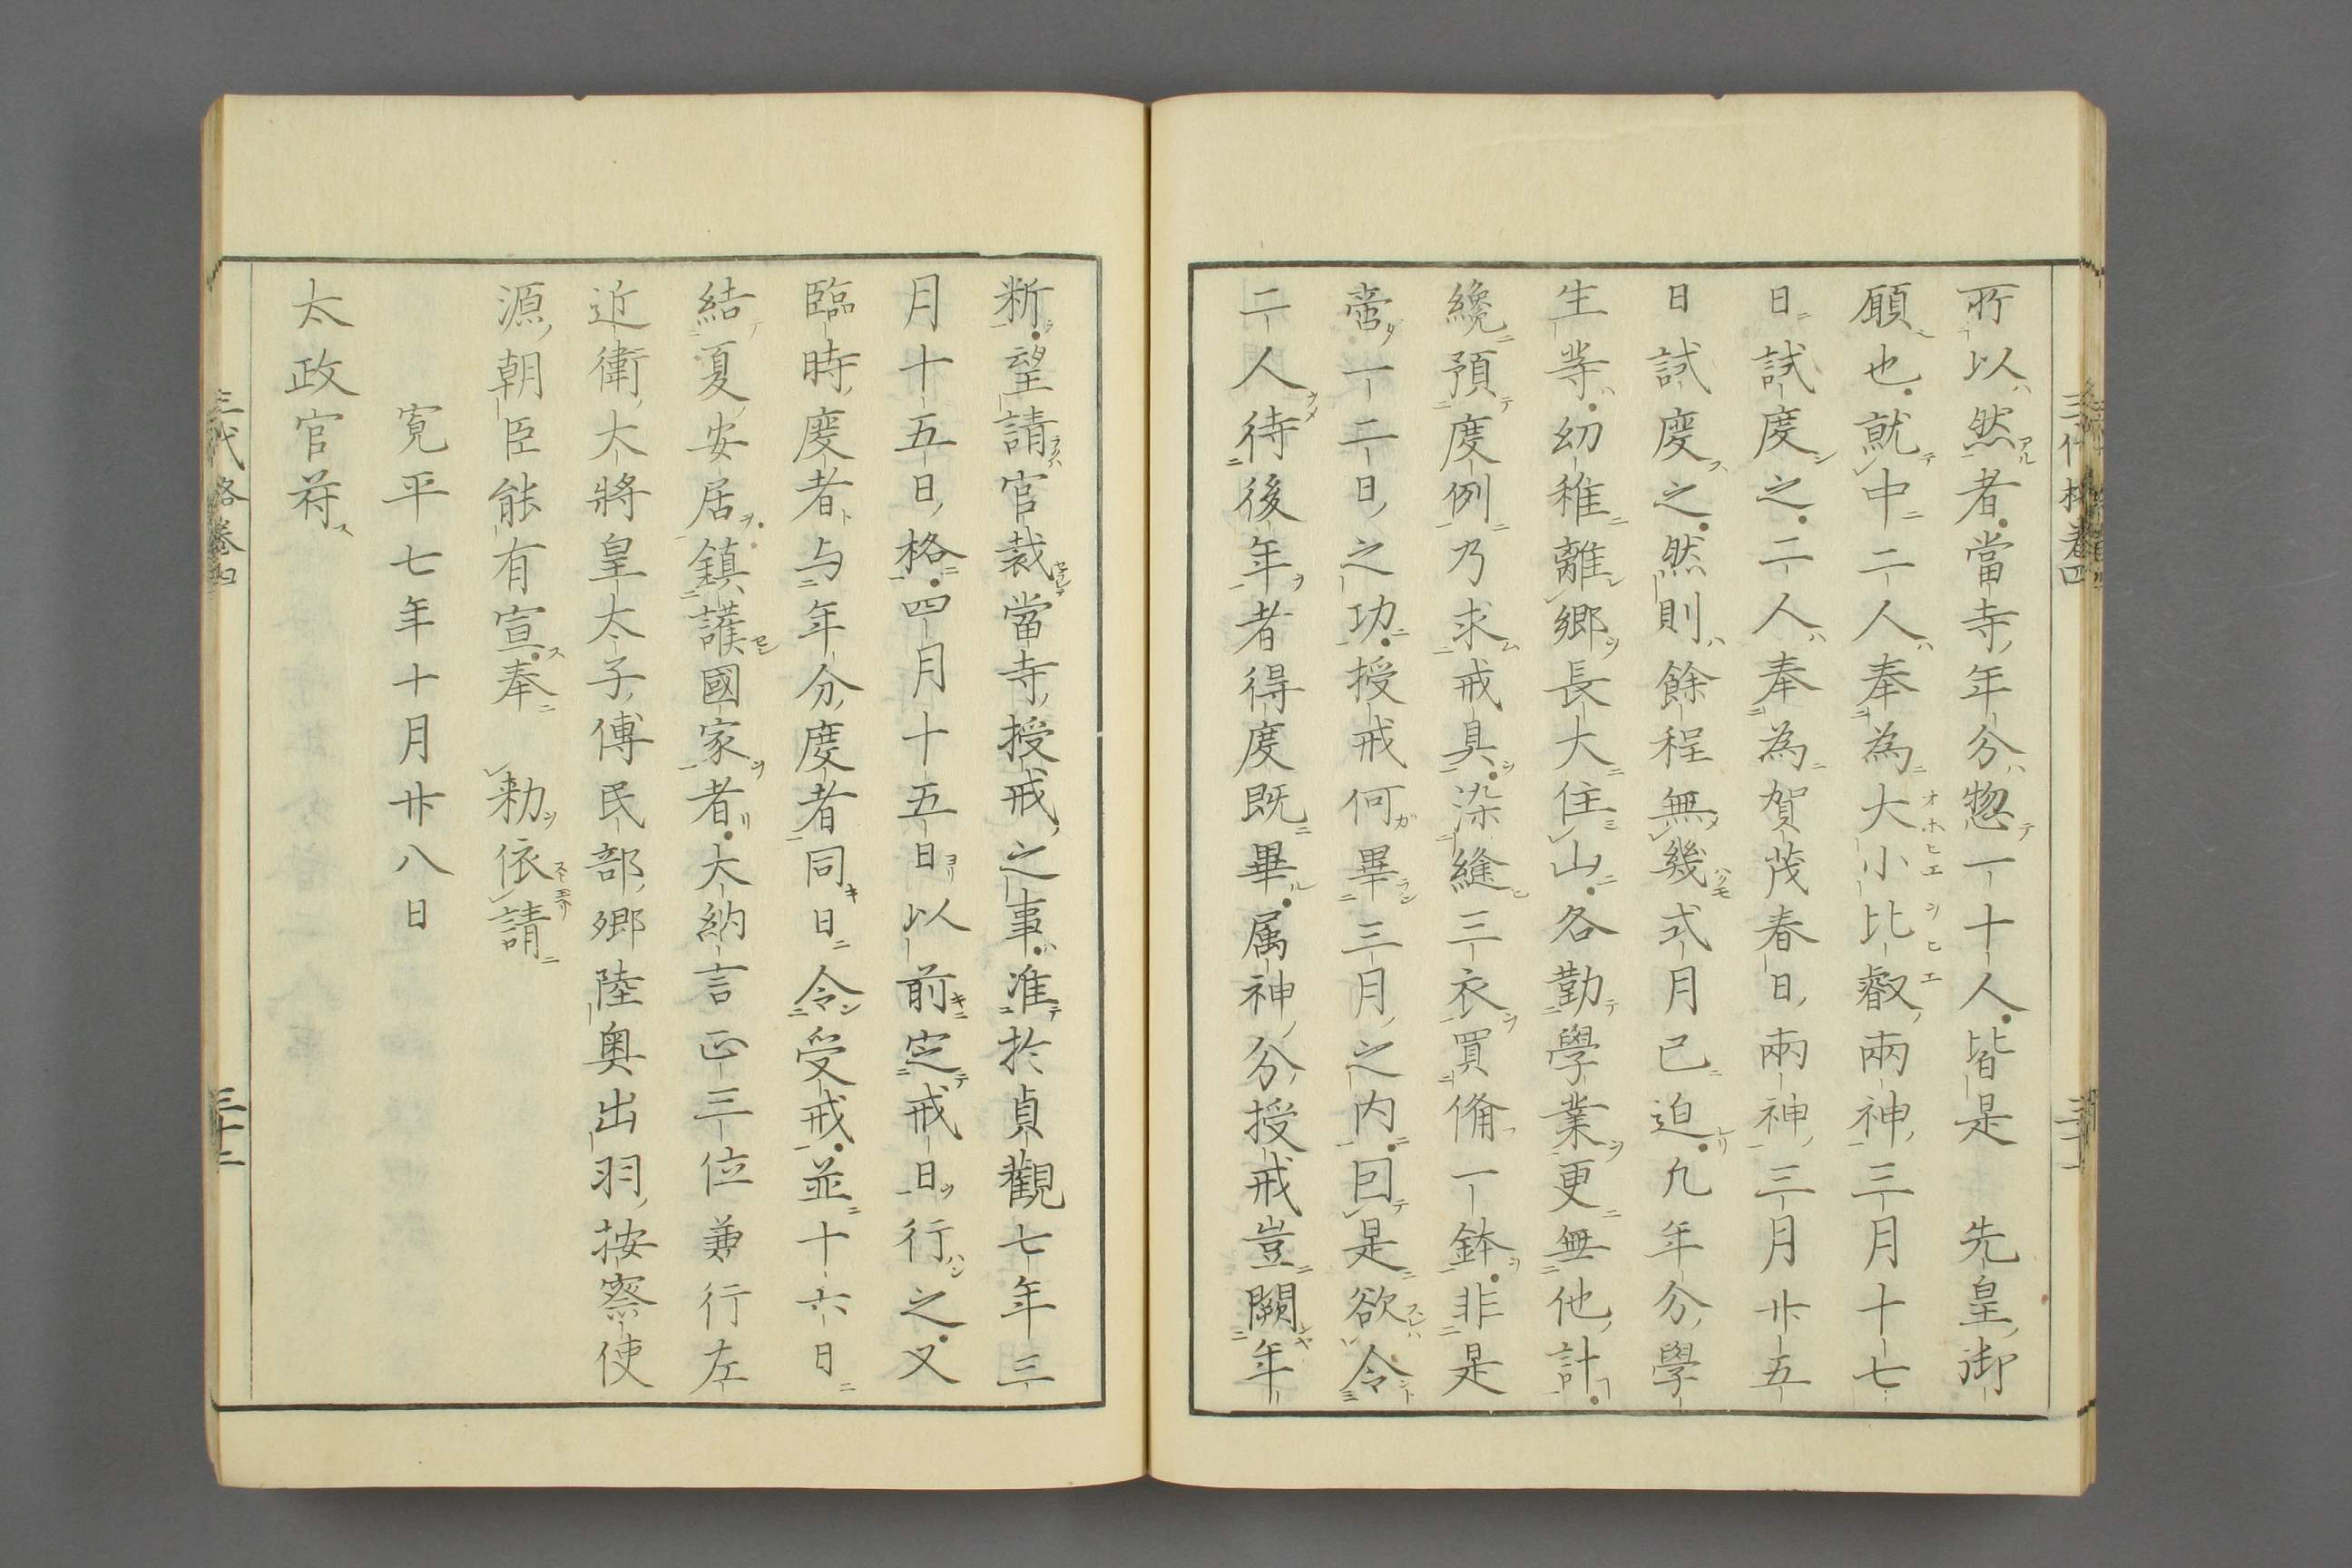 三代格卷四 三十一
所以然者當寺年分惣一十人皆是 先皇御
願也就中二人奉為大小比叡兩神三月十七
日試度之二人奉為賀茂春日兩神三月廿五
日試度之然則餘程無幾式月已迫凢年分學
生等幼稚離鄉長大住山各勤學業更無他計
纔預度例乃求戒具染縫三衣買俻一鉢非是
啻一二日之功授戒何畢三月之内囙是欲令
二人待後年者得度既畢属神分授戒豈闕年
斷望請官裁當寺授戒之事准於貞觀七年三
月十五日格四月十五日以前定戒日行之又
臨時度者与年分度者同日令受戒並十六日
結夏安居鎮護國家者大納言正三位兼行左
近衛大將皇太子傅民部卿陸奥出羽按察使
源朝臣能有宣奉 勅依請
寛平七年十月廿八日
太政官符
三代格卷四 三十二